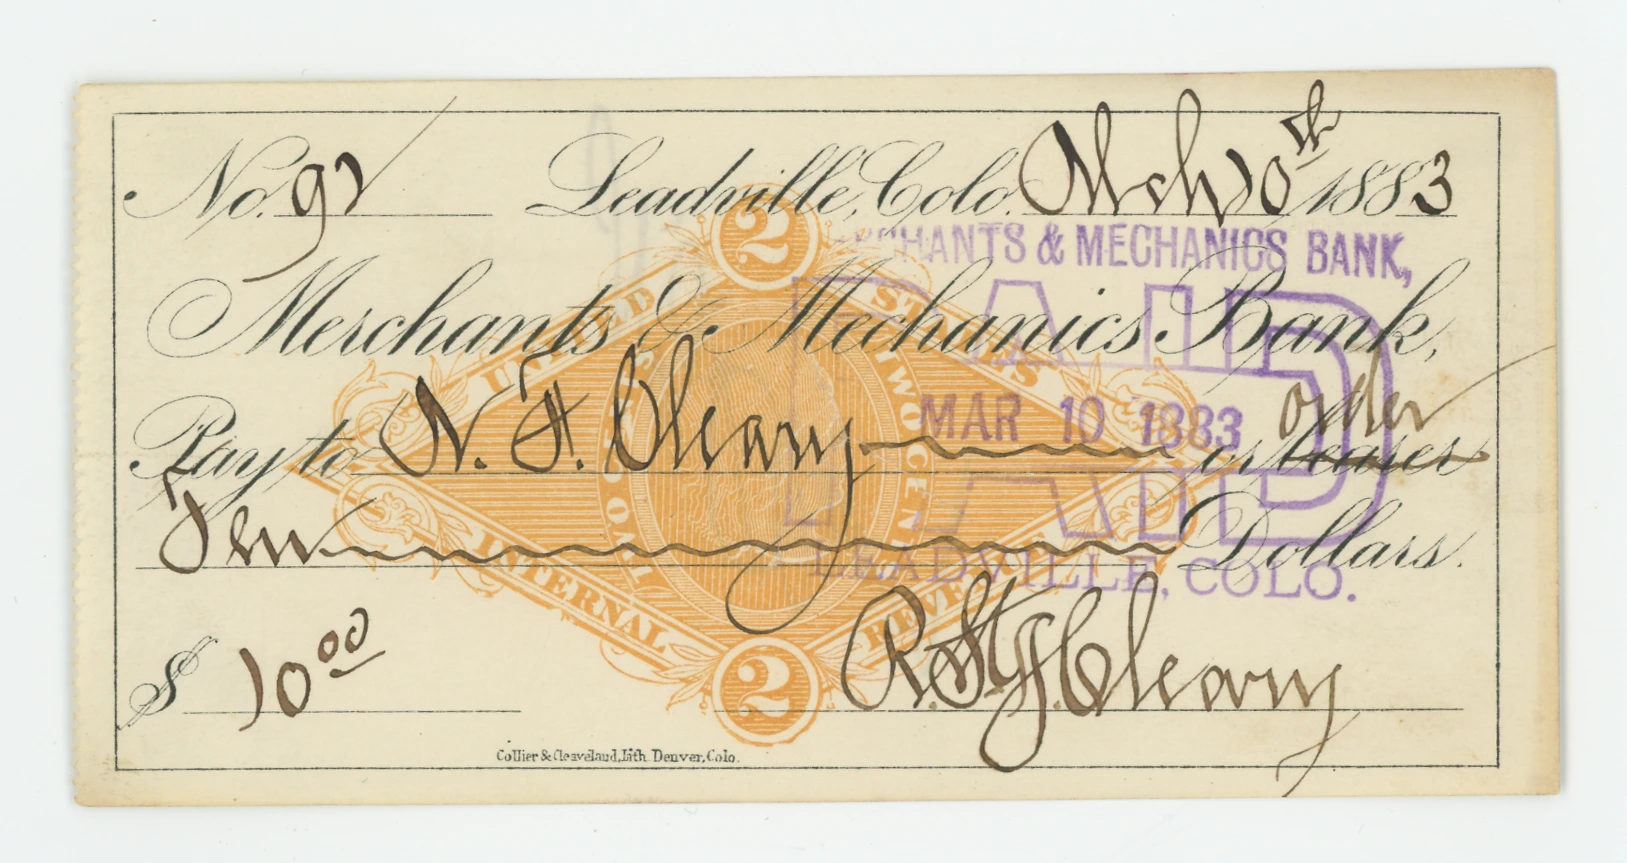 No. 92 Leadville, Colo. Mch 10th 1883
MERCHANTS & MECHANICS BANK,
Merchants & Mechanics Bank,
PAID
Pay to N. F. Cleary or bearer order
MAR 10 1883
Ten Dollars.
LEADVILLE, COLO.
$ 10 00
R. St. J. Cleary
2
UNITED STATES
TWO CENTS
INTERNAL REVENUE
2
Collier & Cleaveland, Lith. Denver, Colo.